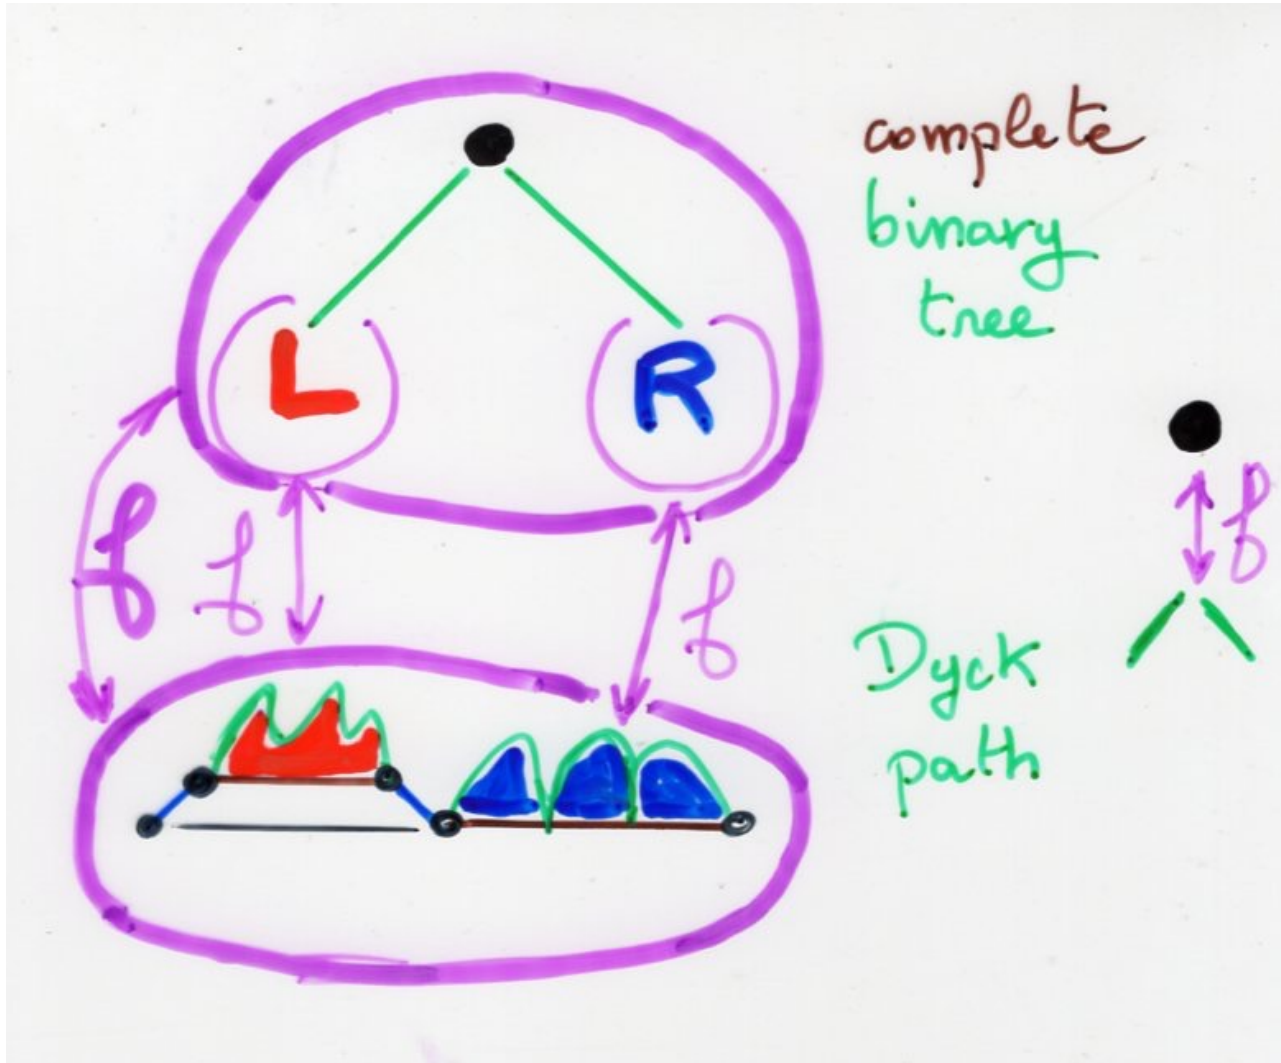 complete
binary
tree
L
R
f
f
f
f
Dyck
path